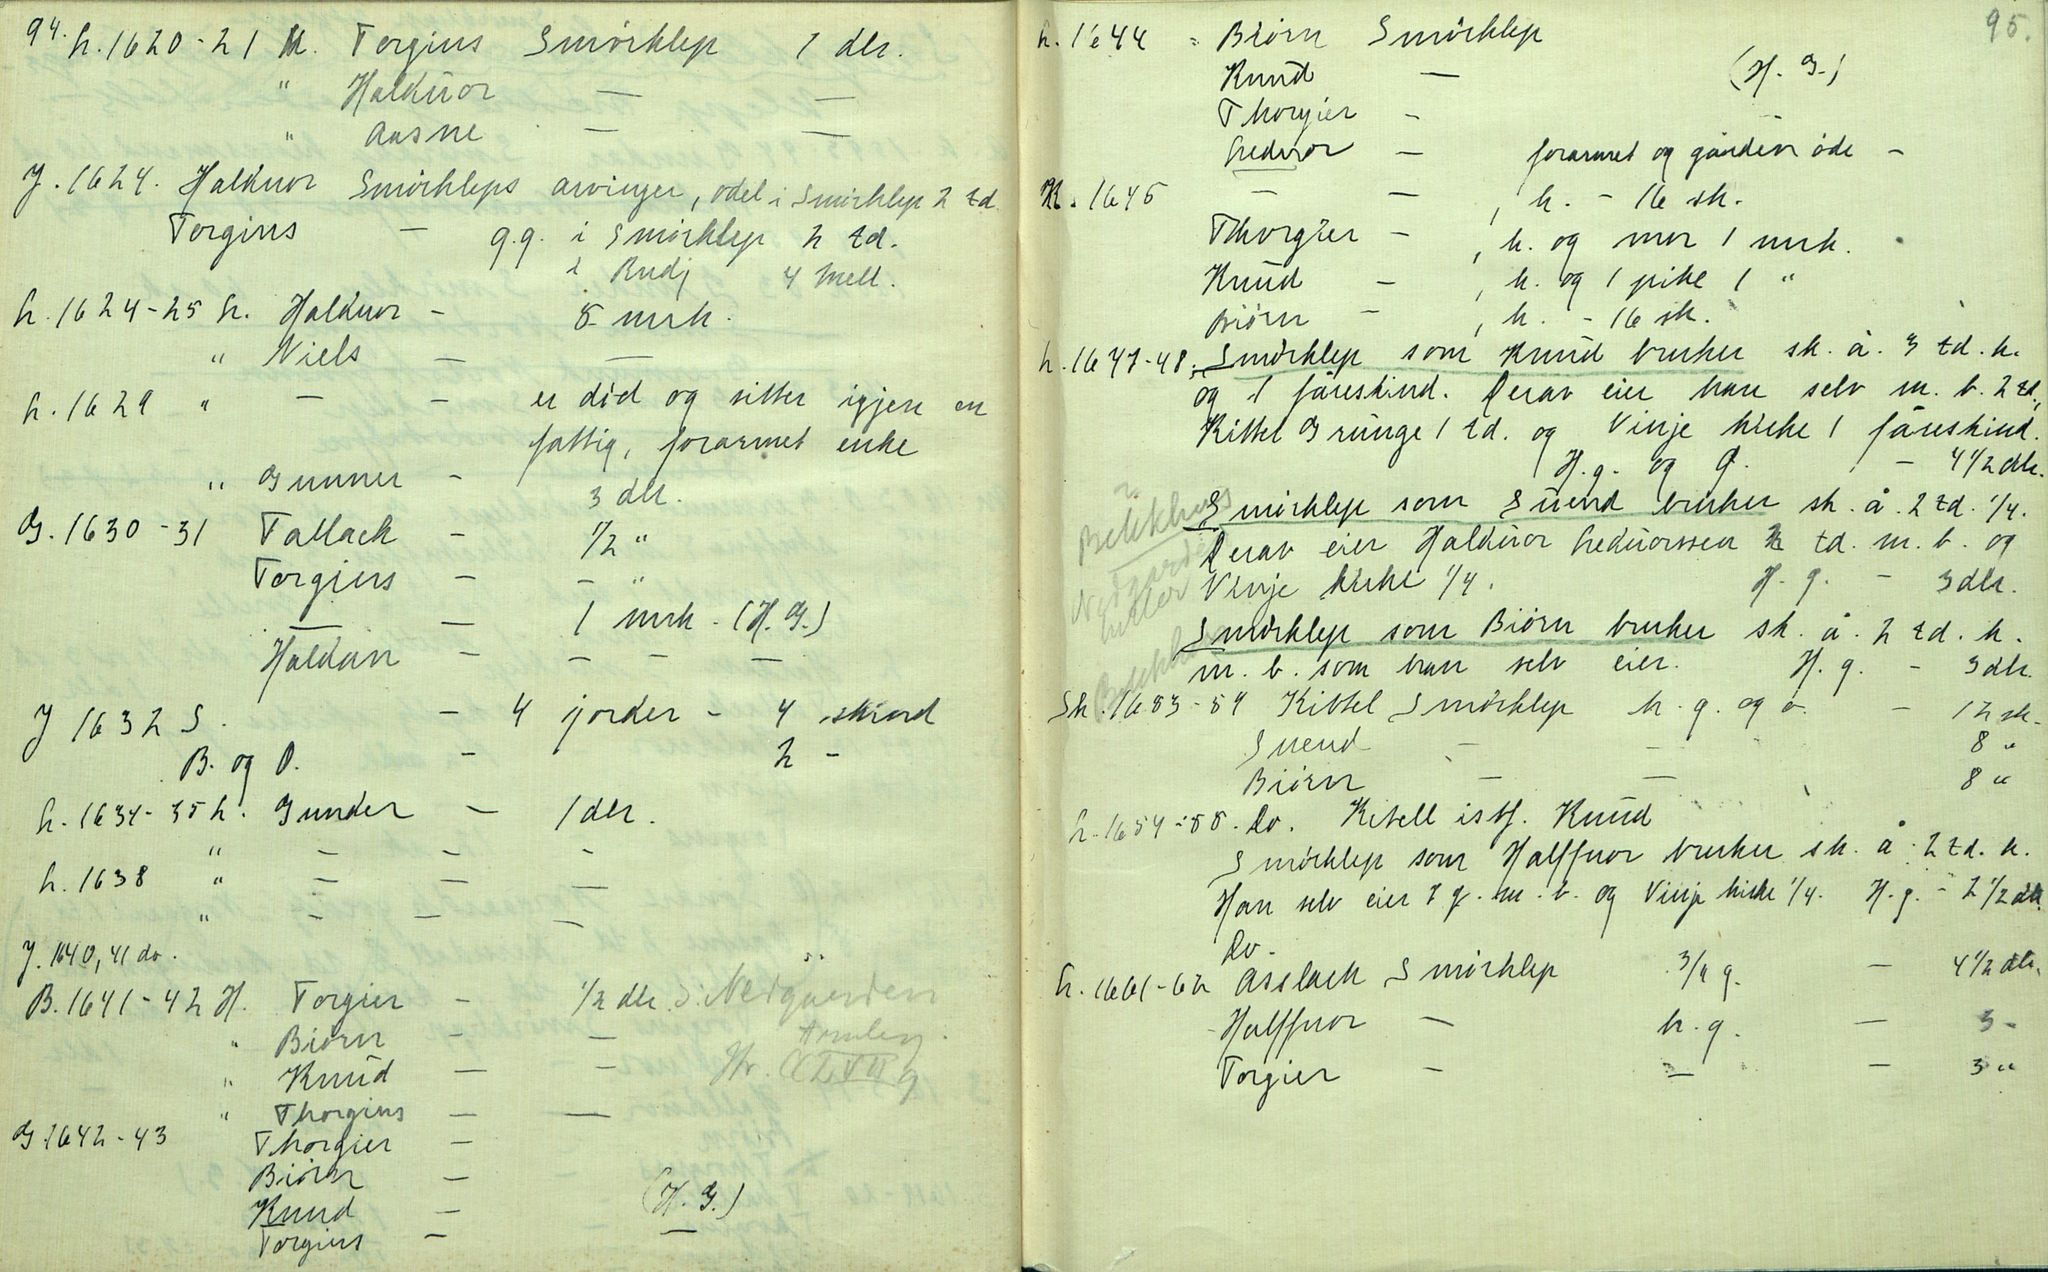 94. h. 1620-21 H. Torgius Smörklep 1 dlr.
" Halduor — —
" Aasne — —
J. 1624. Halduor Smörkleps arvinger, odel i Smörklep 2 td.
Torgius — g.g. i Smörklep 2 td.
i Rudj 4 mell.
h. 1624-25 h. Halduor - 8 mrk.
" Niels — —
h. 1629 " — - er död og sitter igjen en
fattig, forarmet enke
" Gunner - 3 dlr.
G. 1630-31 Tallack - 1/2 "
Torgius - - "
— — 1 mrk. (H. G.)
Haldan - - - —
J 1632 S. - 4 jorder - 4 skind
B. og O. - 2 -
h. 1634-35 h. Gunder - 1 dlr.
" — - -
h. 1638 " — — —
" — — —
J. 1640, 41 do.
B. 1641-42 H. Torgier - 1/2 dlr. S. Nedgaarden
" Biörn — — Aamlev.
" Knud — —
" Thorgius — —
G. 1642-43 Thorgier —
Biörn —
Knud — (H. G.)
Torgius — —
95.
h. 1644 = Biörn Smörklep
Knud — (H. G.)
Thorgier -
Leduor — forarmet og gården öde -
K. 1645 — — , h. - 16 sk.
Thorgier — , h. og mor 1 mrk.
Knud — , h. og 1 pike 1 "
Biörn — , h. - 16 sk.
h. 1647-48. Smörklep som Knud bruker sk. å. 3 td. k.
og 1 fåreskind. Derav eier han selv m. b. 2 td.,
Kittel Grunge 1 td. og Vinje kirke 1 fåreskind.
H. g. og O. - 4 1/2 dlr.
?
Bekkhus Smörklep som Suend bruker sk. å 2 td. 1/4.
Derav eier Halduor Leduorssen 2 td. m. b. og
Nedgarden Vinje kirke 1/4. H. g. - 3 dlr.
eller
Smörklep som Biörn bruker sk. å. 2 td. k.
Bekkhus m. b. som han selv eier. H. g. - 3 dlr.
Sk. 1653-54 Kittel Smörklep h. g. og o. - 12 sk.
Suend — — 8 "
Biörn — — 8 "
h. 1654-55. Do. Ketell istf. Knud
Smörklep som Halffuor bruker sk. å. 2 td. k.
Han selv eier 7 q. m. b. og Vinje kirke 1/4. H. g. - 2 1/2 dlr.
Do.
h. 1661-62 Asslack Smörklep 3/4 g. - 4 1/2 dlr.
Halffuor — h. g. — 3 -
Torgier - — - 3 "